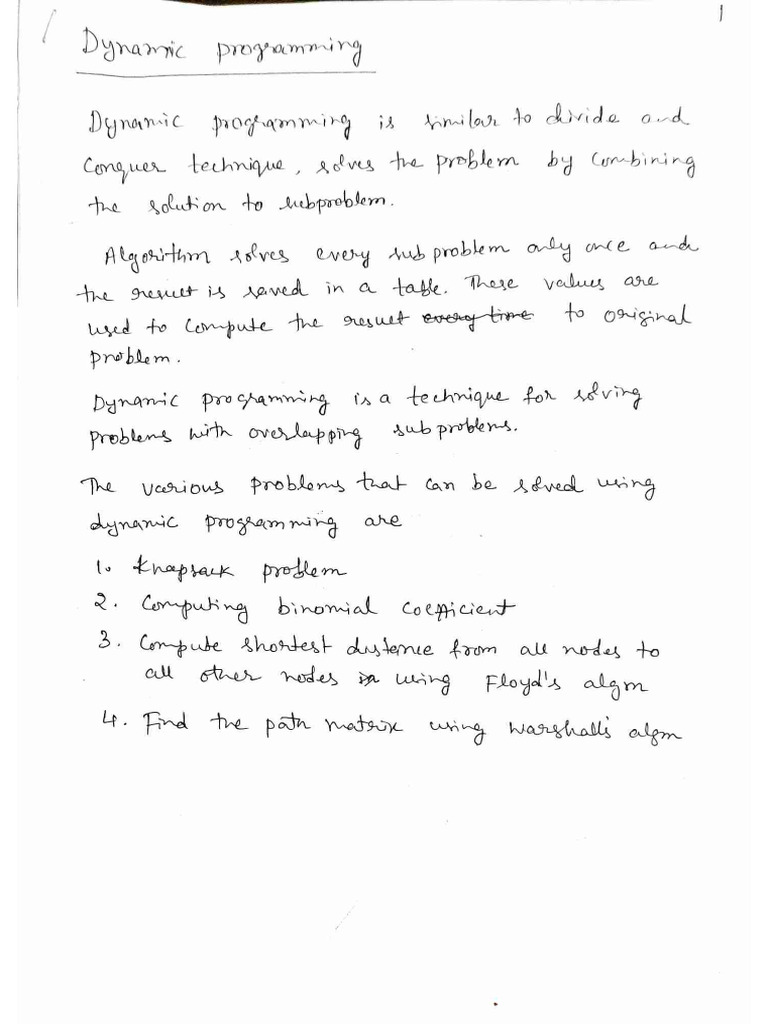 1
Dynamic programming
Dynamic programming is similar to divide and
Conquer technique, solves the problem by combining
the solution to subproblem.
Algorithm solves every subproblem only once and
the result is saved in a table. These values are
used to compute the result every time to original
problem.
Dynamic programming is a technique for solving
problems with overlapping subproblems.
The various problems that can be solved using
dynamic programming are
1. Knapsack problem
2. Computing binomial coefficient
3. Compute shortest distance from all nodes to
all other nodes in using Floyd's algm
4. Find the path matrix using Warshall's algm